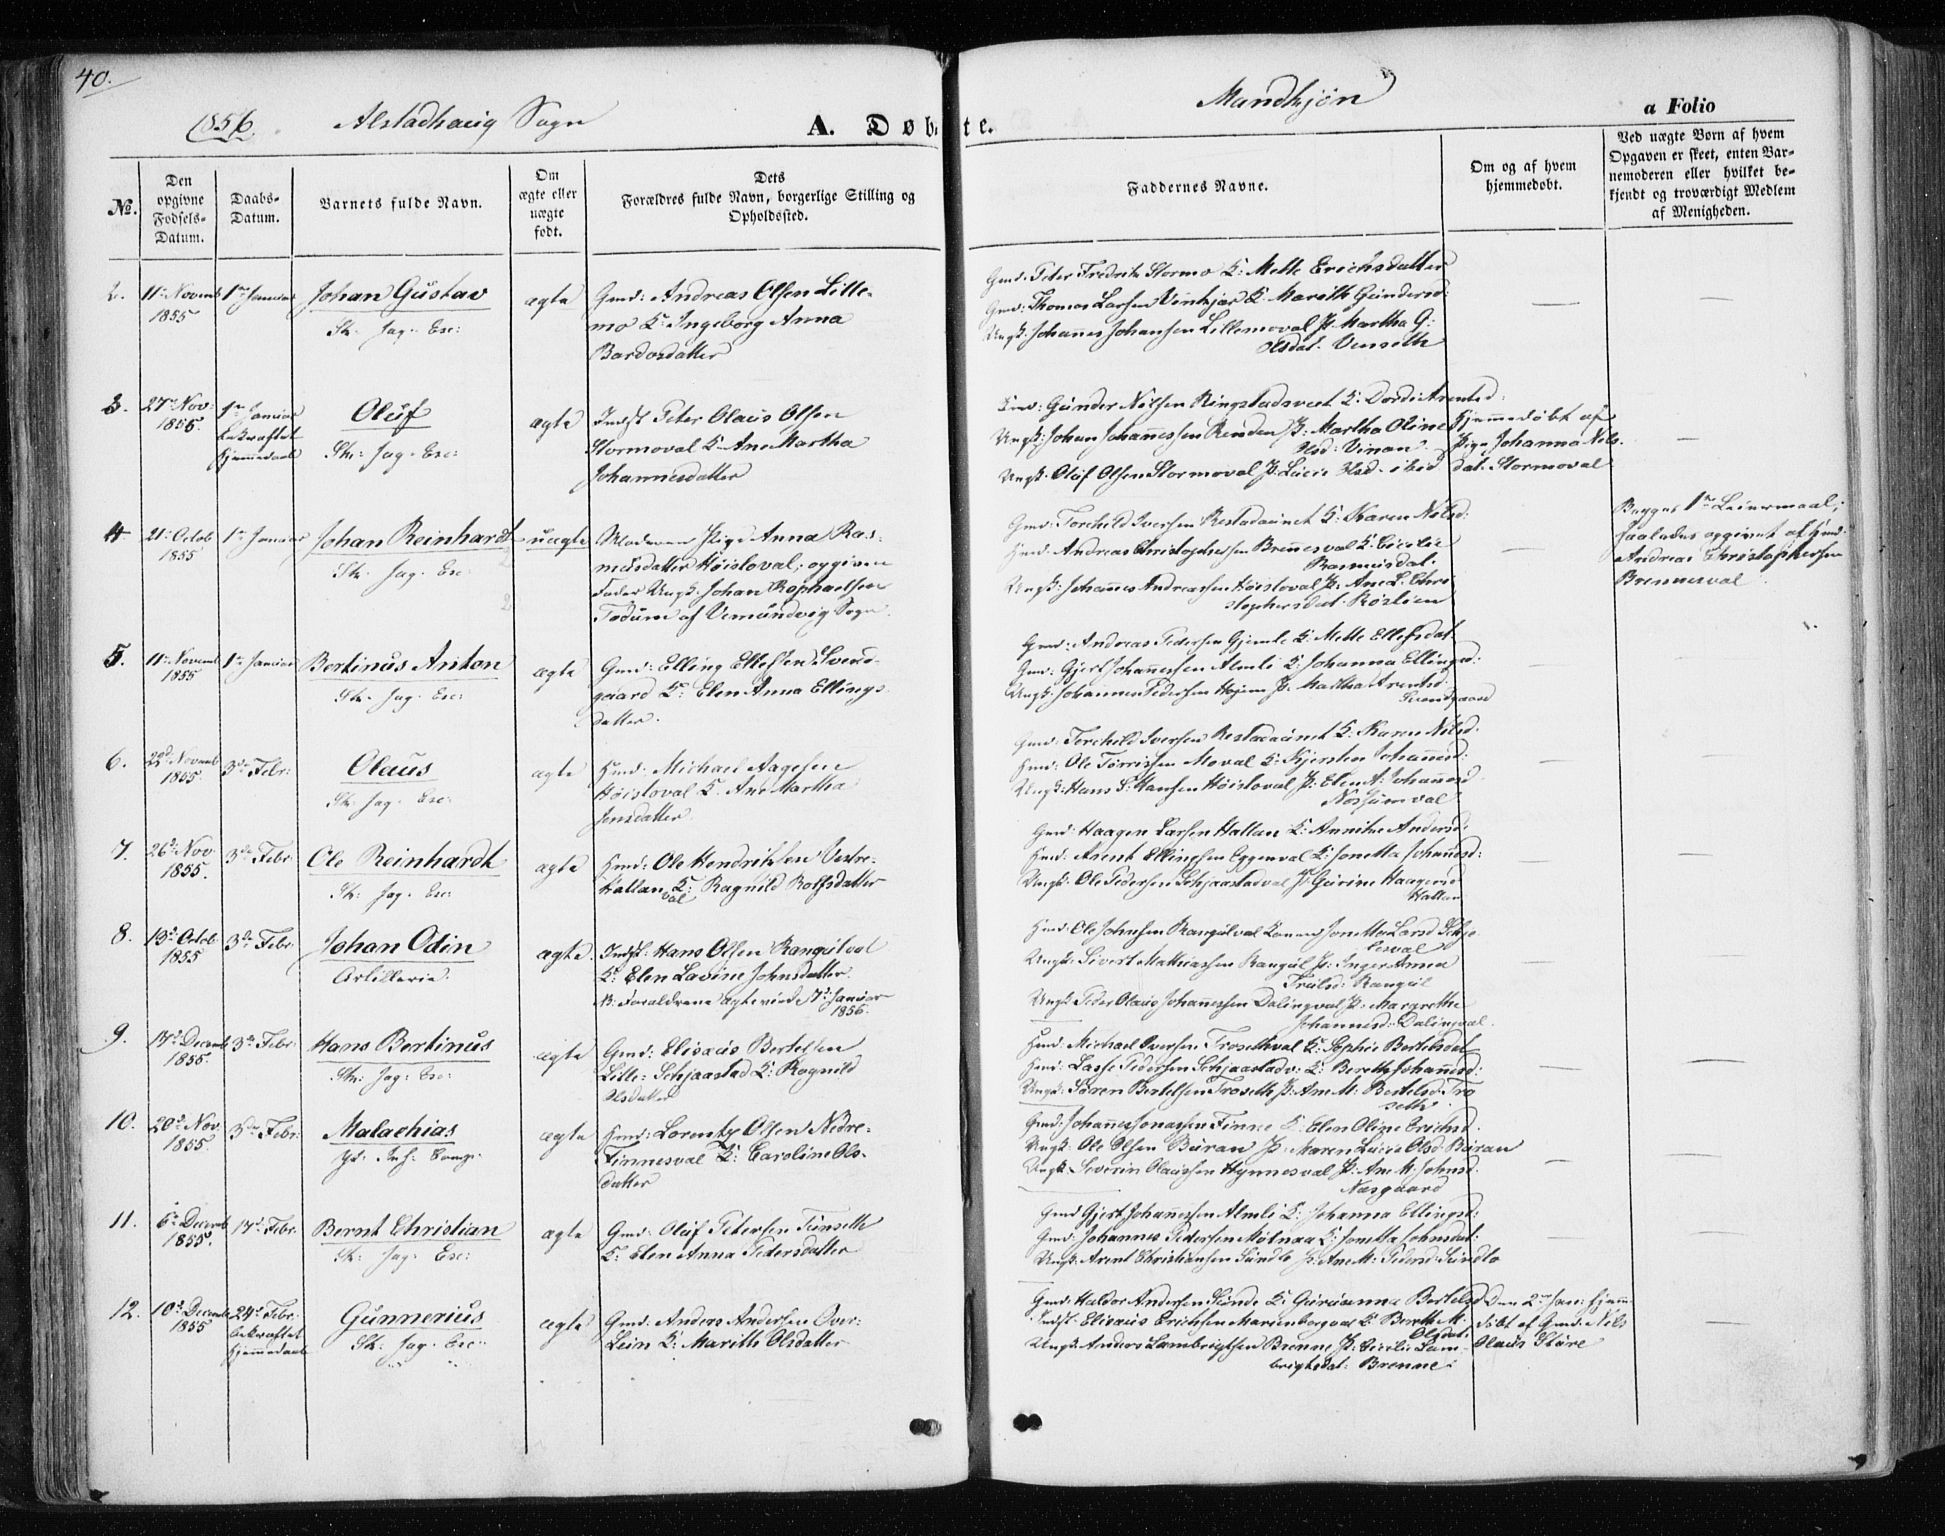 40.
1856. Alstadhaug Sogn
A. Døbte.
Mandkjøn
a Folio
No.
Den opgivne Fødsels-Datum.
Daabs-Datum.
Barnets fulde Navn.
Om ægte eller uægte født.
Dets Forældres fulde Navn, borgerlige Stilling og Opholdssted.
Faddernes Navne.
Om og af hvem hjemmedøbt.
Ved uægte Børn af hvem Opgaven er skeet, enten Barnemoderen eller hvilket bekjendt og troværdigt Medlem af Menigheden.
2. 11te Novemb 1855 1ste Januar Johan Gustav ægte Gmd: Andreas Olsen Lille-
mo K: Ingeborg Anna
Bardosdatter
Gmd: Peter Fredrik Stormo K: Mette Erichsdatter
Gmd: Thomas Larsen Vinkjær K: Marith Gundersd:
Ungk: Johannes Johansen Lillemoval P: Martha G:
Olsdat. Venseth
3. 27de Nov: 1855. 1ste Januar bekræftet Hjemmedaab Oluf ægte Indst Peter Olaus Olsen
Stormoval K: Ane Martha
Johannesdatter
Gmd: Gunder Nilsen Ringstadsveet K: Dordi Arentsd:
Ungk: Johan Johannessen Renden P: Martha Oline
Olsd: Vinan
Ungk: Oluf Olsen Stormoval P: Lucie Olsd. ibid
Hjemmedøbt af
Pige Johanna Nils-
dat. Stormoval
4. 21de Octob 1855 1ste Januar Johan Reinhardt uægte Moderen Pige Anna Ras-
musdatter Høisloval; opgiven
Fader Ungk. Johan Raphaelsen
af Vemundvig Sogn
Gmd: Torchild Iversen Restadaunet K: Karen Nilsd:
Hmd: Andreas Christophersen Brennesval K: Cicilie
Rasmusdat.
Ungk: Johannes Andreassen Høisloval P: Ane L. Chri-
stophersdat: Røslien
Begges 1ste Leiermaal;
saaledes opgivet af Hmd:
Andreas Christophersen
Brennesval
5. 11te Novemb 1855 1ste Januar Bertinus Anton ægte Gmd: Elling Ellefsen Svend-
gaard K: Elen Anna Ellings-
datter.
Gmd: Andreas Pedersen Gjemle K: Mette Ellefsdat
Gmd: Gjert Johannessen Almli K: Johanna Ellingsd:
Ungk: Johannes Pedersen Hojem P: Martha Arentsd:
Svendgaard
6. 22de Novemb 1855. 3de Febr: Olaus ægte Hmd: Michael Aagesen
Høisloval K: Ane Martha
Jensdatter.
Gmd: Torchild Iversen Restadaunet K: Karen Nilsd.
Hmd: Ole Torrissen Moval K: Kjersten Johannesd:
Ungk: Hans S. Hansen Høisloval P: Elen A: Johannesd
Nossumval
7. 26de Nov 1855. 3de Febr. Ole Reinhardt ægte Hmd: Ole Hendriksen Vestre-
Hallan val K: Ragnild Rolfsdatter
Gmd: Haagen Larsen Hallan K: Annikne Andersd:
Hmd: Arent Ellingsen Eggenval K: Jonetta Johannesd:
Ungk: Ole Pedersen Schjaastadval P: Gurine Haagensd
Hallan
8. 13de Octob 1855 3de Febr. Johan Odin ægte. Indst: Hans Olsen Rangulval
Artillerie.
K: Elen Lavine Johnsdatter
NB: Forældrene Ægteviede 7de Januar
1856.
Hmd: Ole Johnsen Rangulval Konen Jone Mar Larsd Schje-
lesval
Ungk: Sivert Mathiassen Rangul P: Inger Anna
Trulsd: Rangul
Ungk: Peder Olaus Johannessen Dalingval P: Margrethe
Johannesd: Dalingval.
9. 17de Decemb 1855. 3de Febr. Hans Bertinus ægte Gmd: Elisæus Bertelsen
Lille-Schjaastad K: Ragnild
Olsdatter
Hmd: Michael Iversen Trosethval K: Sophie Bertelsdat
Hmd: Lasse Pedersen Schjaastadv: K: Bereth Johannesd:
Ungk: Søren Bertelsen Troseth P: Ane M: Bertelsd: Tro-
seth
10. 20de Nov. 1855. 3de Febr: Malachias ægte Hmd: Lorentz Olsen Nedre-
Finnesval K: Caroline Ols-
datter
Gmd: Johannes Jonassen Finne K: Elen Oline Erichsd.
Ungk: Ole Olsen Buran P: Maren Lucie Olsd Buran
Ungk: Severin Olaussen Hynnesval P: Ane M: Johnsd.
Næsgaard
11. 6te Decemb 1855. 17de Febr. Bernt Christian ægte Gmd: Oluf Petersen Tunseth
K: Elen Anna Pedersdatter
Gmd Gjert Johannessen Almli K: Johanna Ellingsd:
Gmd: Johannes Pedersen Molnaa K: Jonetta Johnsdat:
Ungk: Arent Christiansen Sundlo P: Ane M: Pedersd: Sundlo
12. 10de Decemb 1855 24de Febr. bekræftet Hjemmedaab Gunnerius ægte Gmd: Anders Andersen Over-
Lein K: Marith Olsdatter
Gmd: Haldor Andersen Stunde K: Guruanna Bertelsd
Indst: Elisæus Erichsen Marenborgval K: Bereth M.
Olsdat.
Ungk: Anders Lambrigtsen Brenne P: Cicilie Lam-
brigtsdat: Brenne.
Den 2den Jan: hjemme-
døbt af Gmd: Nils
Olaus Støre